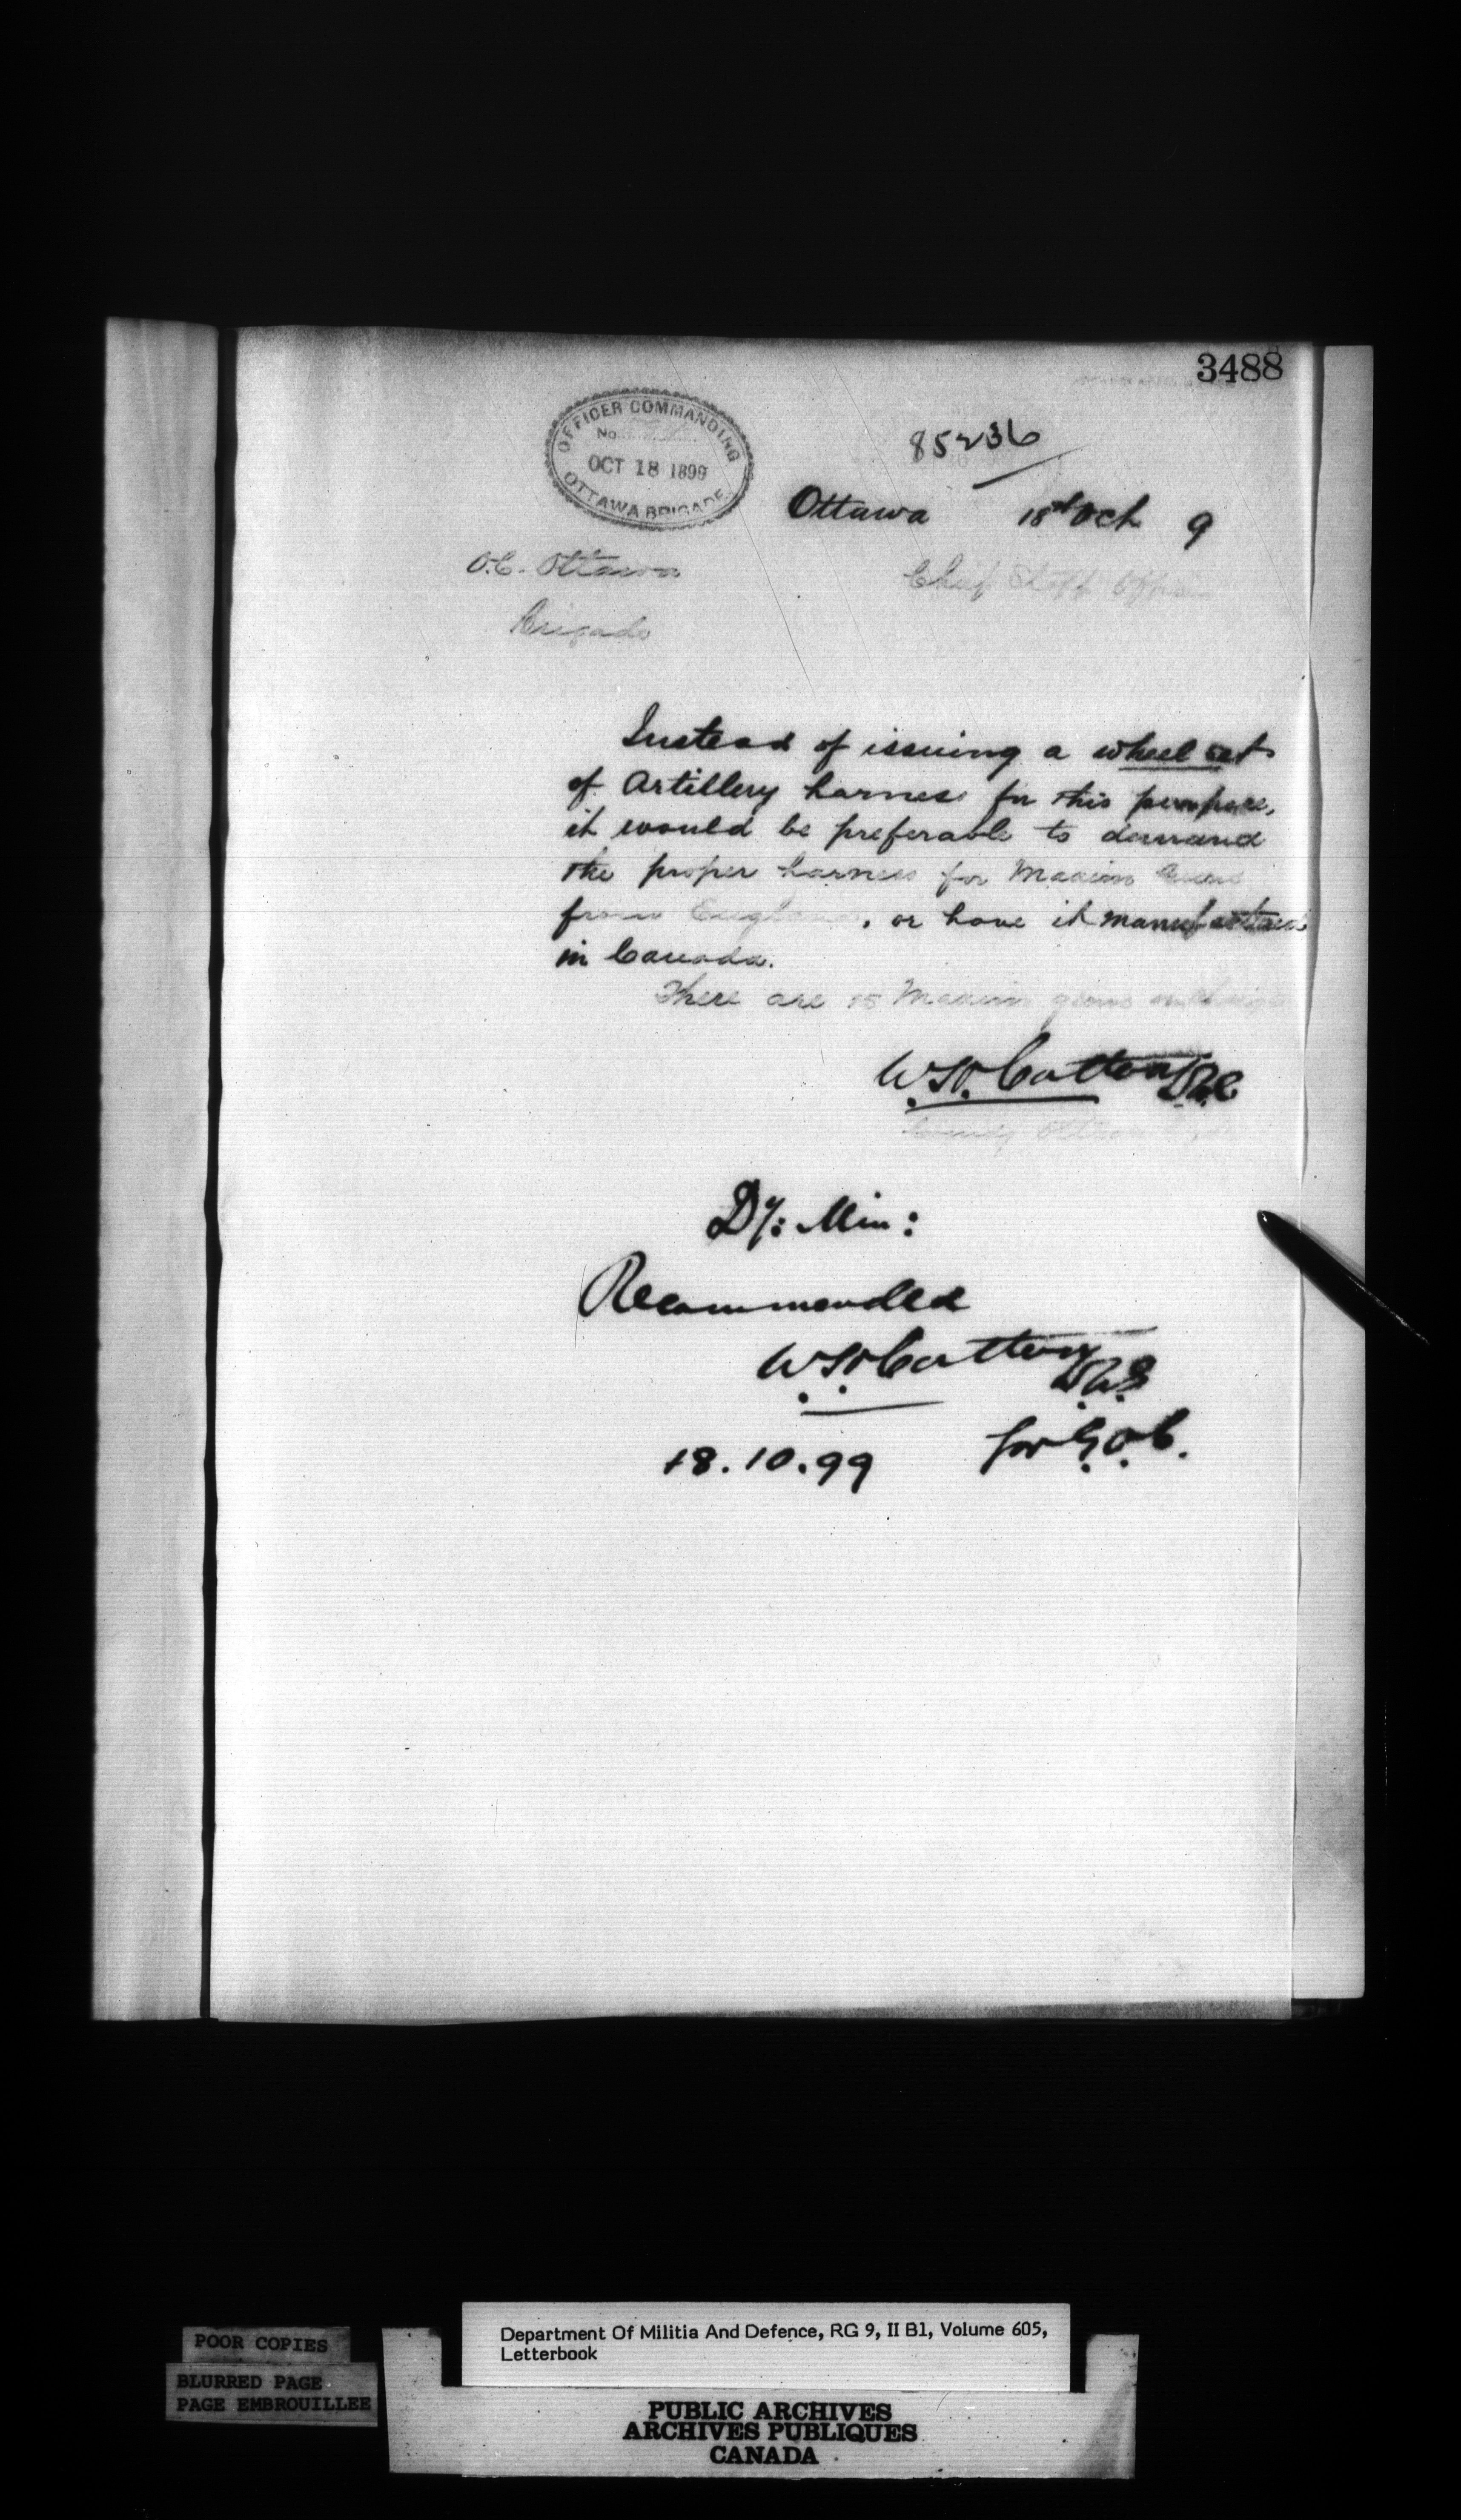 3488
OFFICER COMMANDING
No.
OCT 18 1899
OTTAWA BRIGADE
85236
Ottawa 18th Oct 9
O.C. Ottawa
Chief Staff Officer
Brigade
Instead of issuing a wheel set
of Artillery harness for this purpose,
it would be preferable to demand
the proper harness for Maxim Guns
from England, or have it manufactured
in Canada.
There are 15 Maxim guns on charge
W.H. Cotton
Comdg Ottawa Bgde
Dy: Min:
Recommended
W.H. Cotton
18.10.99 for G.O.C.
Department Of Militia And Defence, RG 9, II B1, Volume 605,
Letterbook
POOR COPIES
BLURRED PAGE
PAGE EMBROUILLEE
PUBLIC ARCHIVES
ARCHIVES PUBLIQUES
CANADA